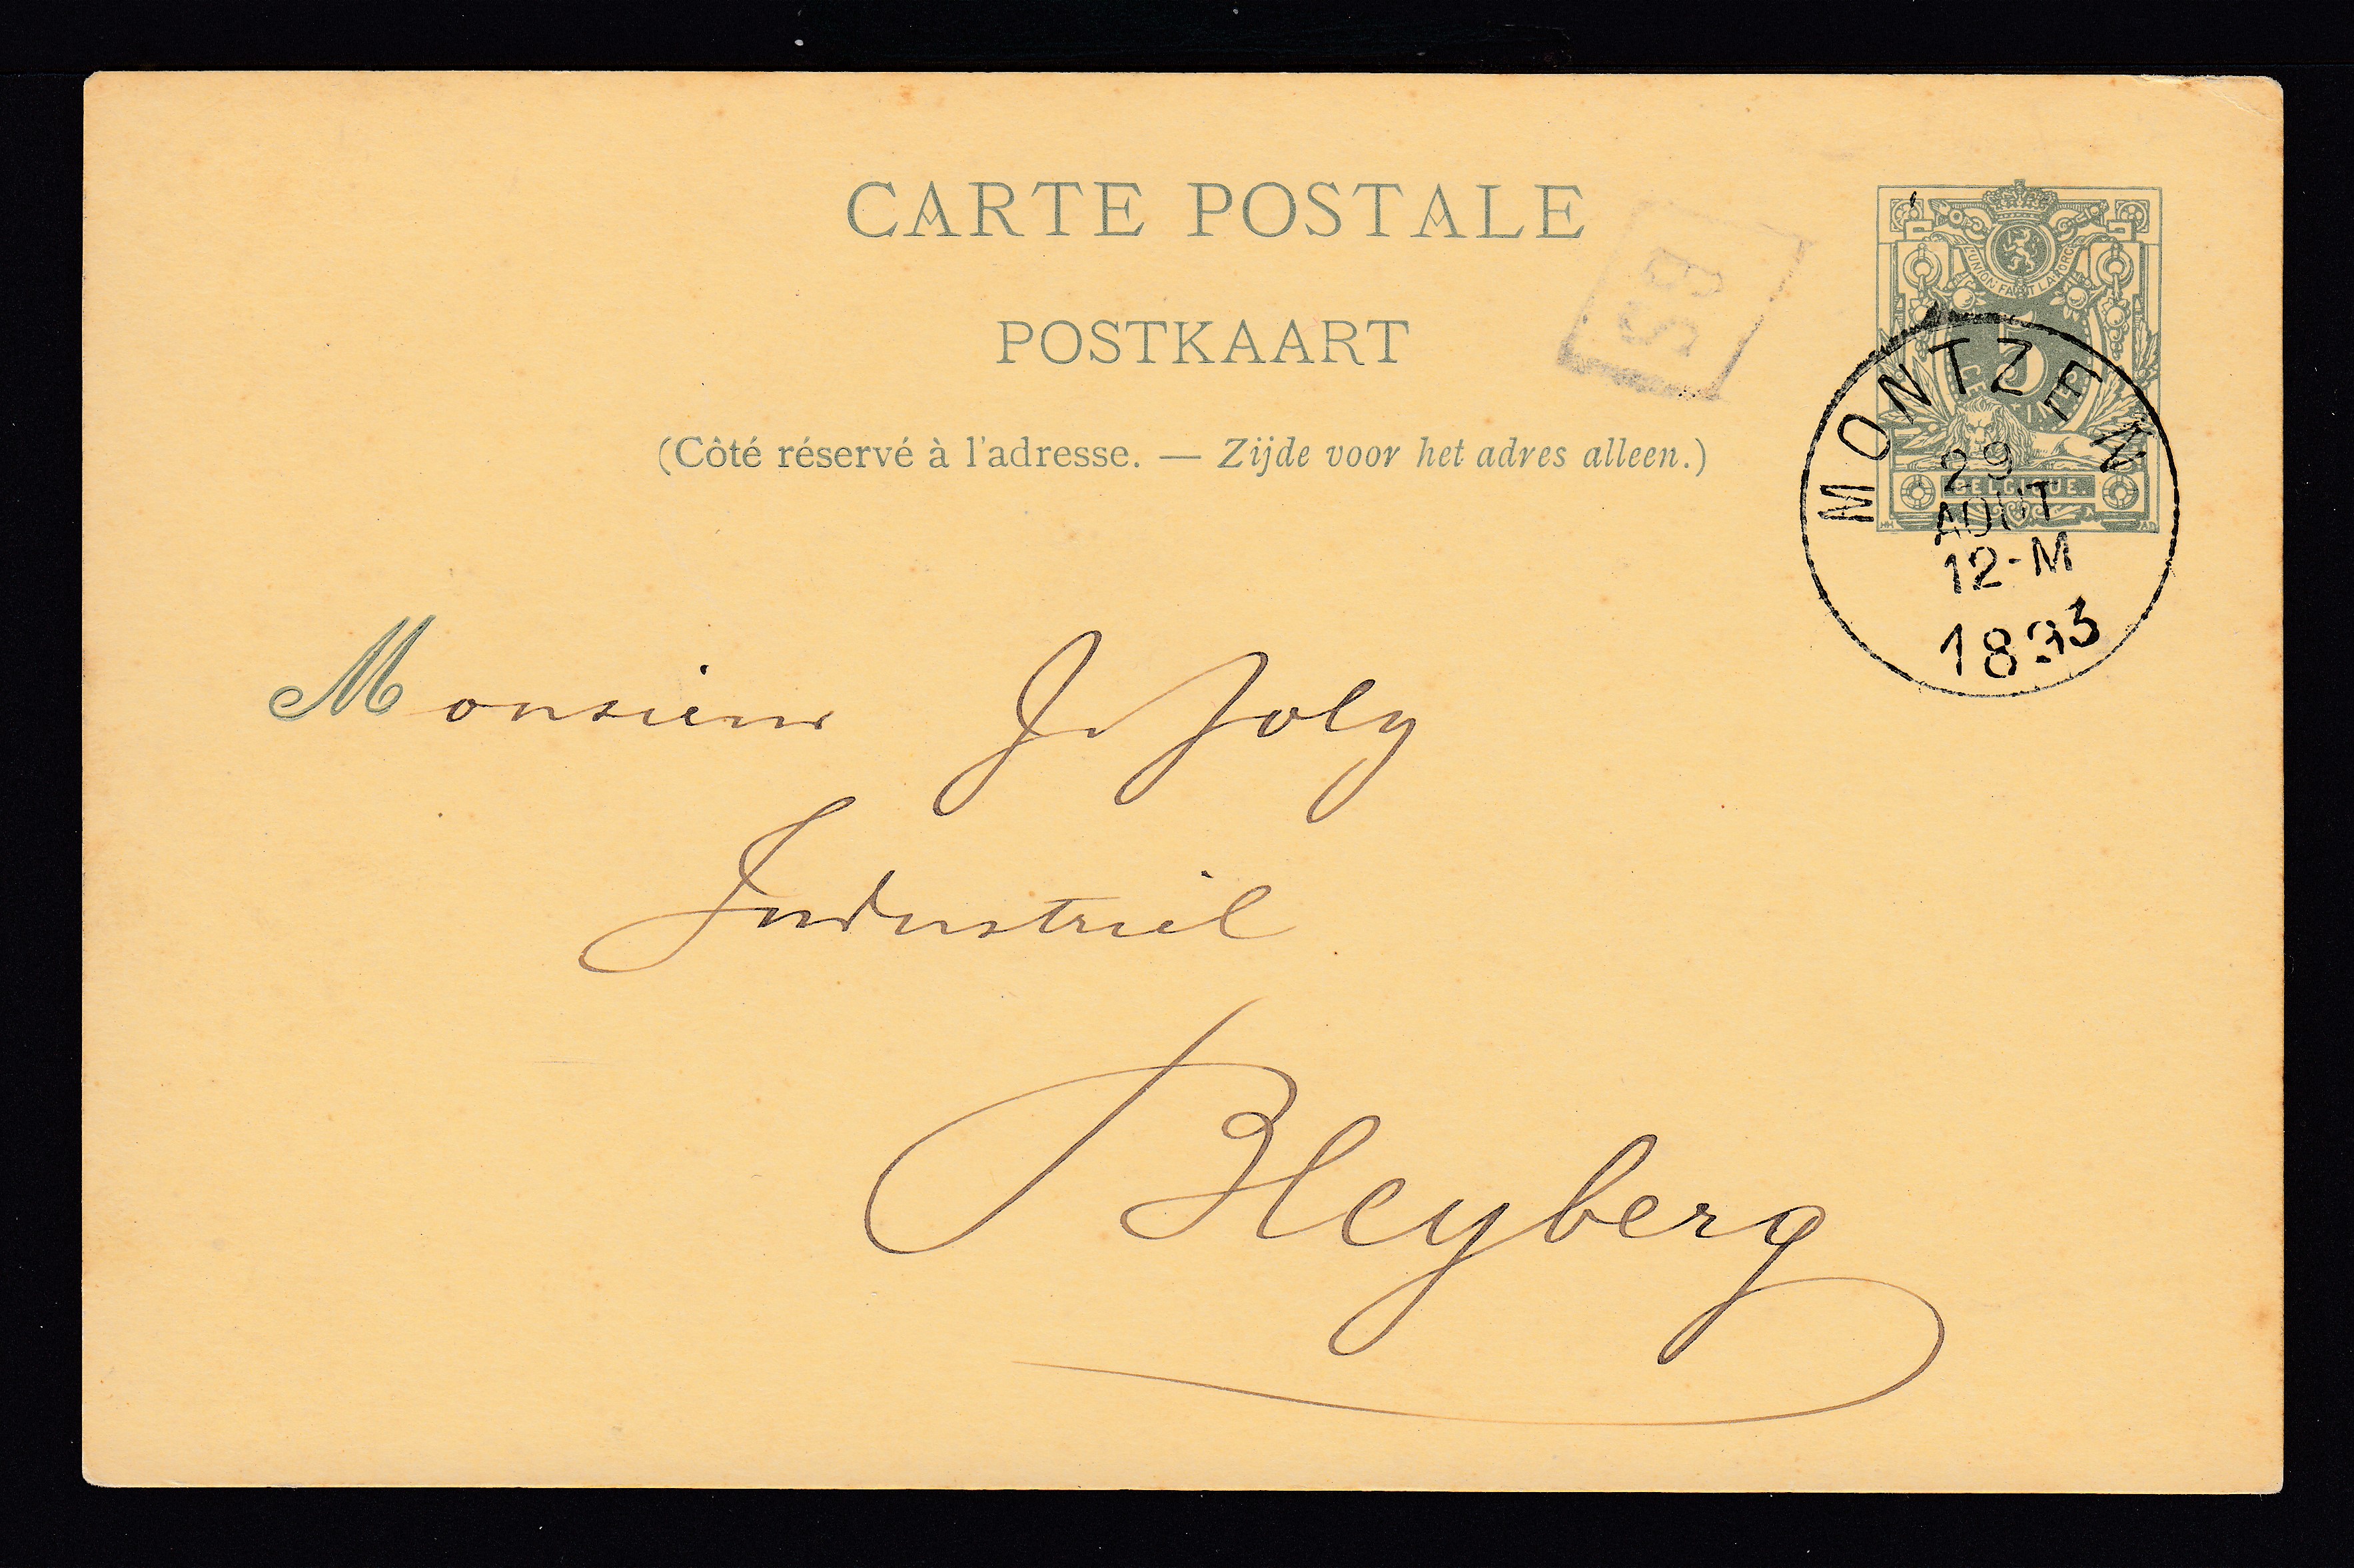 CARTE POSTALE
POSTKAART
(Côté réservé à l'adresse. — Zijde voor het adres alleen.)
L'UNION FAIT LA FORCE
5
CENTIMES
BELGIQUE.
MONTZEN
29
AOUT
12-M
1893
Monsieur J Joly
Industriel
Bleyberg